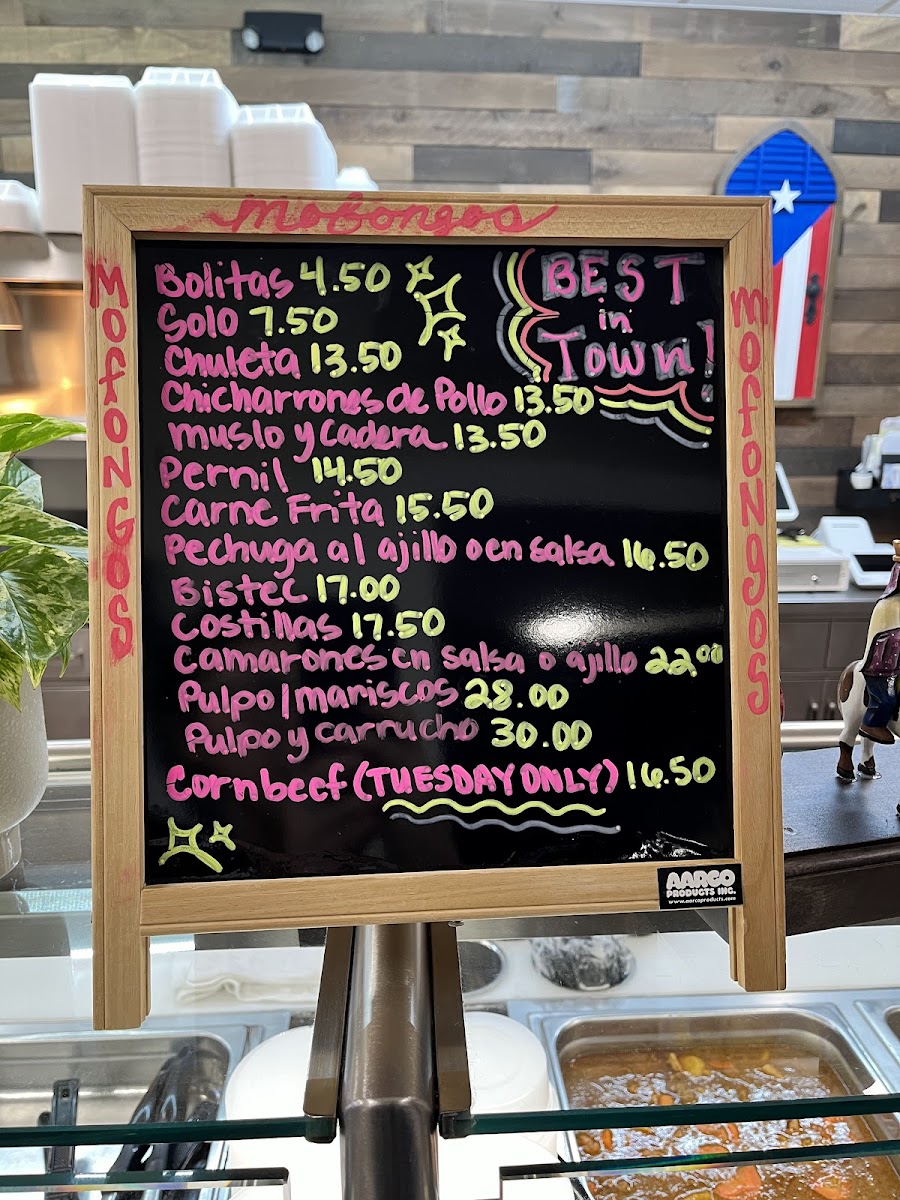 Mofongos
MofonGos
mofonGos
BEST
in
Town!
Bolitas 4.50
Solo 7.50
Chuleta 13.50
Chicharrones de Pollo 13.50
muslo y cadera 13.50
Pernil 14.50
Carne Frita 15.50
Pechuga al ajillo o en salsa 16.50
Bistec 17.00
Costillas 17.50
camarones en salsa o ajillo 22.00
Pulpo/mariscos 28.00
Pulpo y carrucho 30.00
Cornbeef (TUESDAY ONLY) 16.50
AARCO
PRODUCTS INC.
www.aarcoproducts.com